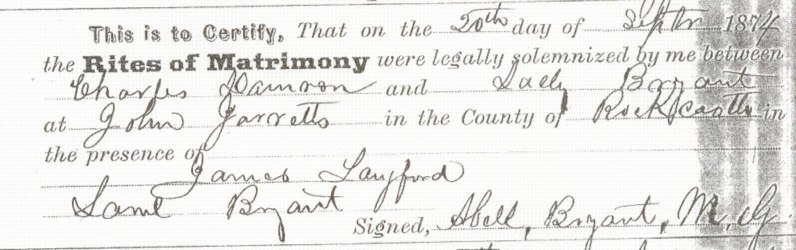 This is to Certify, That on the 20th day of Septr 1874
the Rites of Matrimony were legally solemnized by me between
Charles Damron and Sally Bryant
at John Jarretts in the County of Rockcastle in
the presence of
James Langford
Saml Bryant
Signed, Abell, Bryant, M. G.